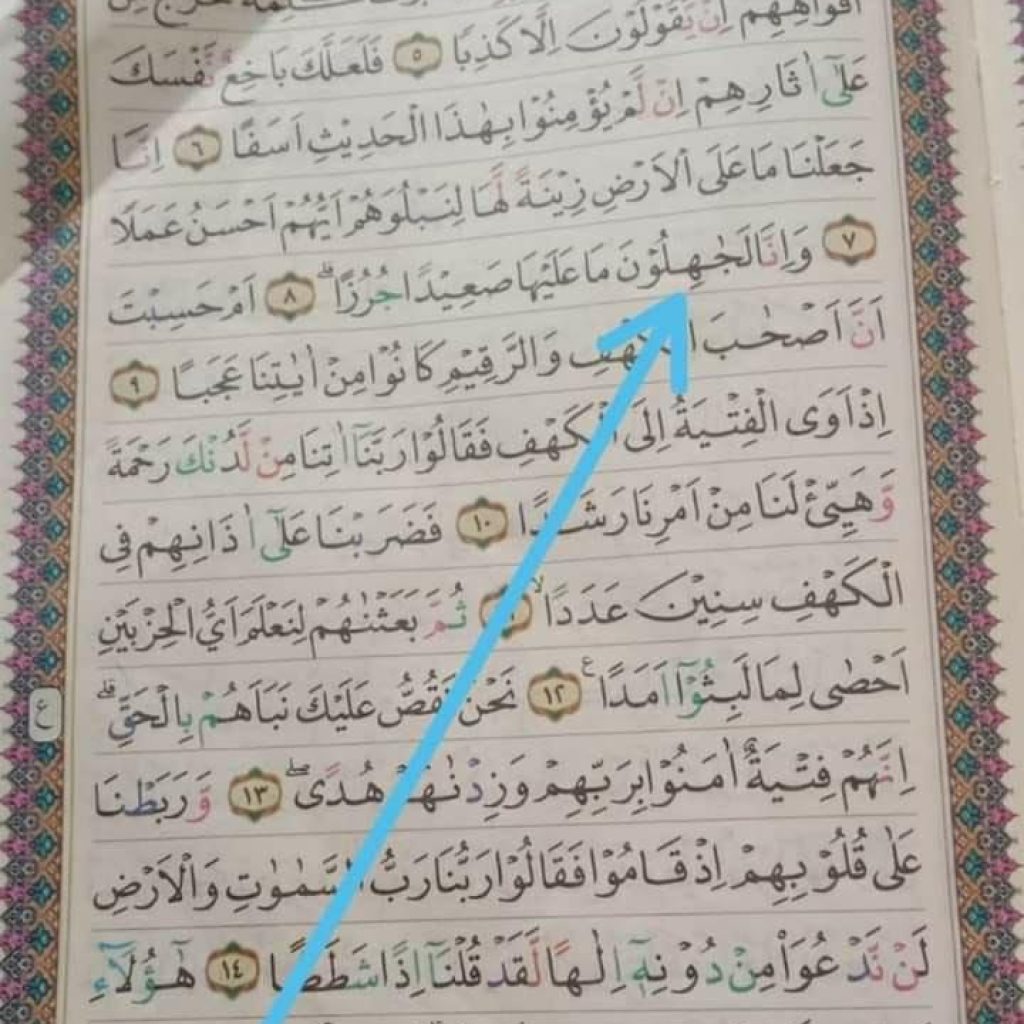 اَفْوَاهِهِمْ اِنْ يَّقُوْلُوْنَ اِلَّا كَذِبًا ٥ فَلَعَلَّكَ بَاخِعٌ نَّفْسَكَ
عَلٰٓى اٰثَارِهِمْ اِنْ لَّمْ يُؤْمِنُوْا بِهٰذَا الْحَدِيْثِ اَسَفًا ٦ اِنَّا
جَعَلْنَا مَا عَلَى الْاَرْضِ زِيْنَةً لَّهَا لِنَبْلُوَهُمْ اَيُّهُمْ اَحْسَنُ عَمَلًا
٧ وَاِنَّا لَجٰهِلُوْنَ مَا عَلَيْهَا صَعِيْدًا جُرُزًاۗ ٨ اَمْ حَسِبْتَ
اَنَّ اَصْحٰبَ الْكَهْفِ وَالرَّقِيْمِ كَانُوْا مِنْ اٰيٰتِنَا عَجَبًا ٩
اِذْ اَوَى الْفِتْيَةُ اِلَى الْكَهْفِ فَقَالُوْا رَبَّنَآ اٰتِنَا مِنْ لَّدُنْكَ رَحْمَةً
وَّهَيِّئْ لَنَا مِنْ اَمْرِنَا رَشَدًا ١٠ فَضَرَبْنَا عَلٰٓى اٰذَانِهِمْ فِى
الْكَهْفِ سِنِيْنَ عَدَدًاۙ ١١ ثُمَّ بَعَثْنٰهُمْ لِنَعْلَمَ اَيُّ الْحِزْبَيْنِ
اَحْصٰى لِمَا لَبِثُوْٓا اَمَدًا ࣖ ١٢ نَحْنُ نَقُصُّ عَلَيْكَ نَبَاَهُمْ بِالْحَقِّۗ
ع
اِنَّهُمْ فِتْيَةٌ اٰمَنُوْا بِرَبِّهِمْ وَزِدْنٰهُمْ هُدًىۖ ١٣ وَّرَبَطْنَا
عَلٰى قُلُوْبِهِمْ اِذْ قَامُوْا فَقَالُوْا رَبُّنَا رَبُّ السَّمٰوٰتِ وَالْاَرْضِ
لَنْ نَّدْعُوَا۟ مِنْ دُوْنِهٖٓ اِلٰهًا لَّقَدْ قُلْنَآ اِذًا شَطَطًا ١٤ هٰٓؤُلَاۤءِ